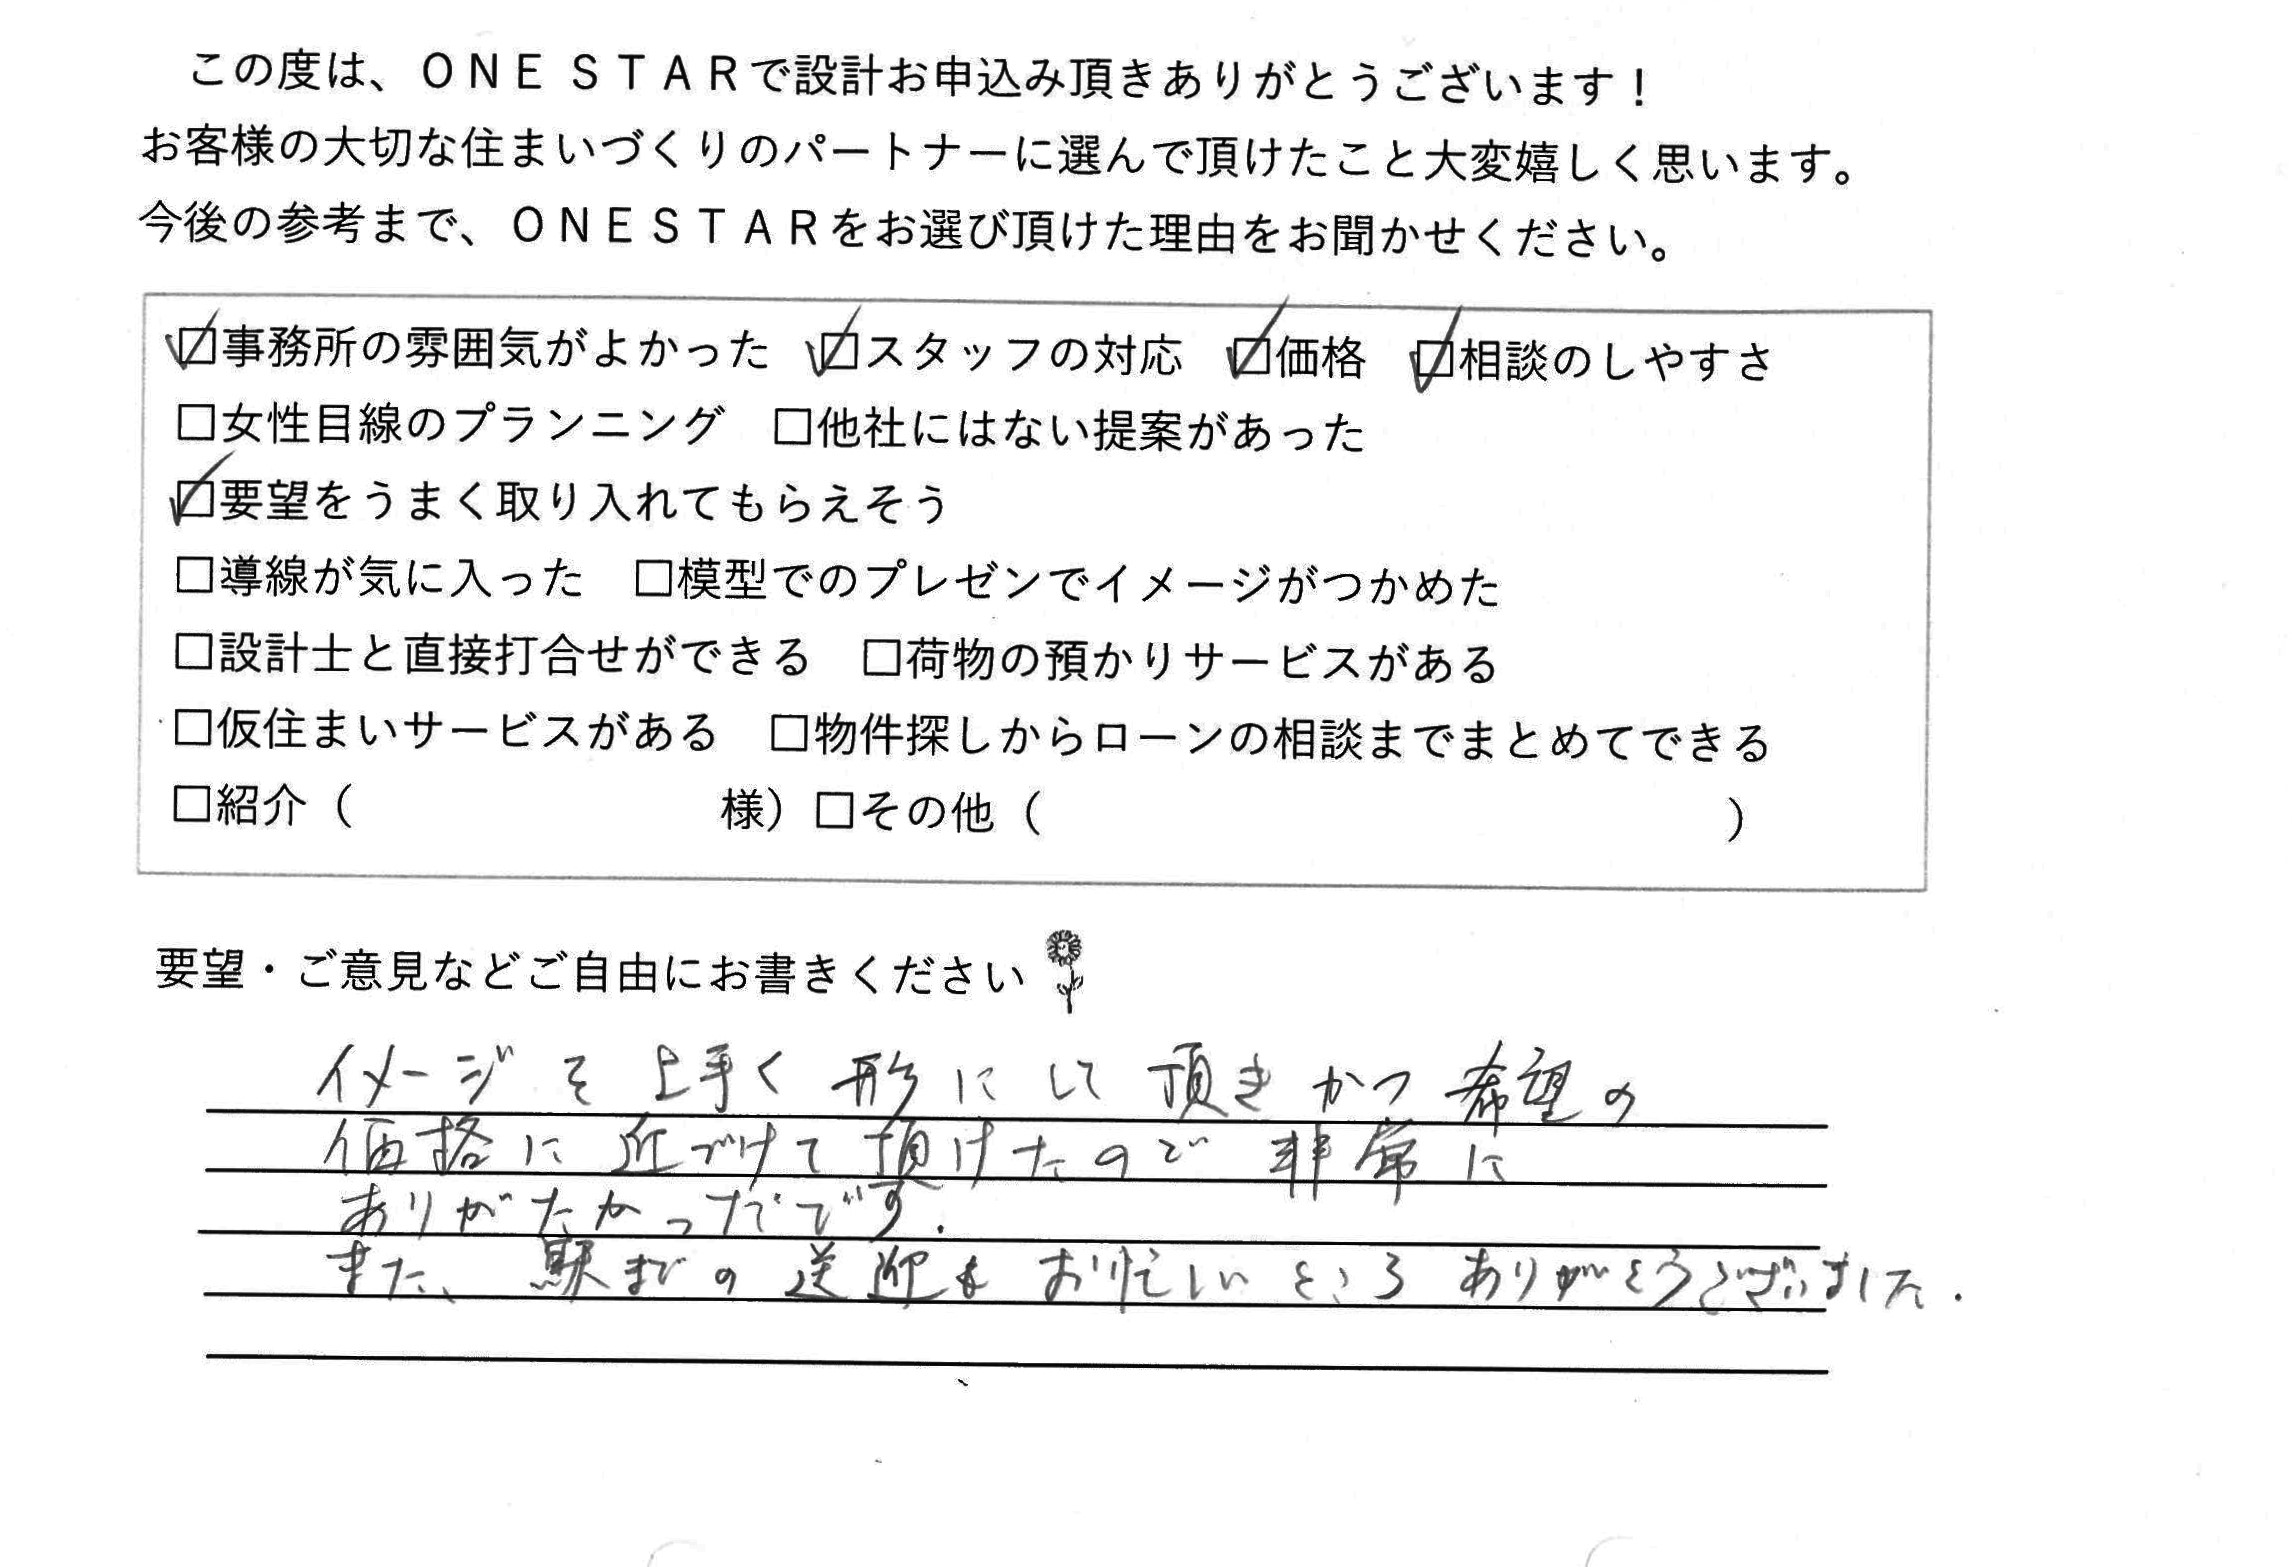 この度は、ＯＮＥ ＳＴＡＲで設計お申込み頂きありがとうございます！
お客様の大切な住まいづくりのパートナーに選んで頂けたこと大変嬉しく思います。
今後の参考まで、ＯＮＥＳＴＡＲをお選び頂けた理由をお聞かせください。
☑事務所の雰囲気がよかった ☑スタッフの対応 ☑価格 ☑相談のしやすさ
□女性目線のプランニング □他社にはない提案があった
☑要望をうまく取り入れてもらえそう
□導線が気に入った □模型でのプレゼンでイメージがつかめた
□設計士と直接打合せができる □荷物の預かりサービスがある
□仮住まいサービスがある □物件探しからローンの相談までまとめてできる
□紹介（ 様）□その他（ ）
要望・ご意見などご自由にお書きください
イメージを上手く形にして頂きかつ希望の
価格に近づけて頂けたので非常に
ありがたかったでです.
また、駅までの送迎もお忙しいところありがとうございました.